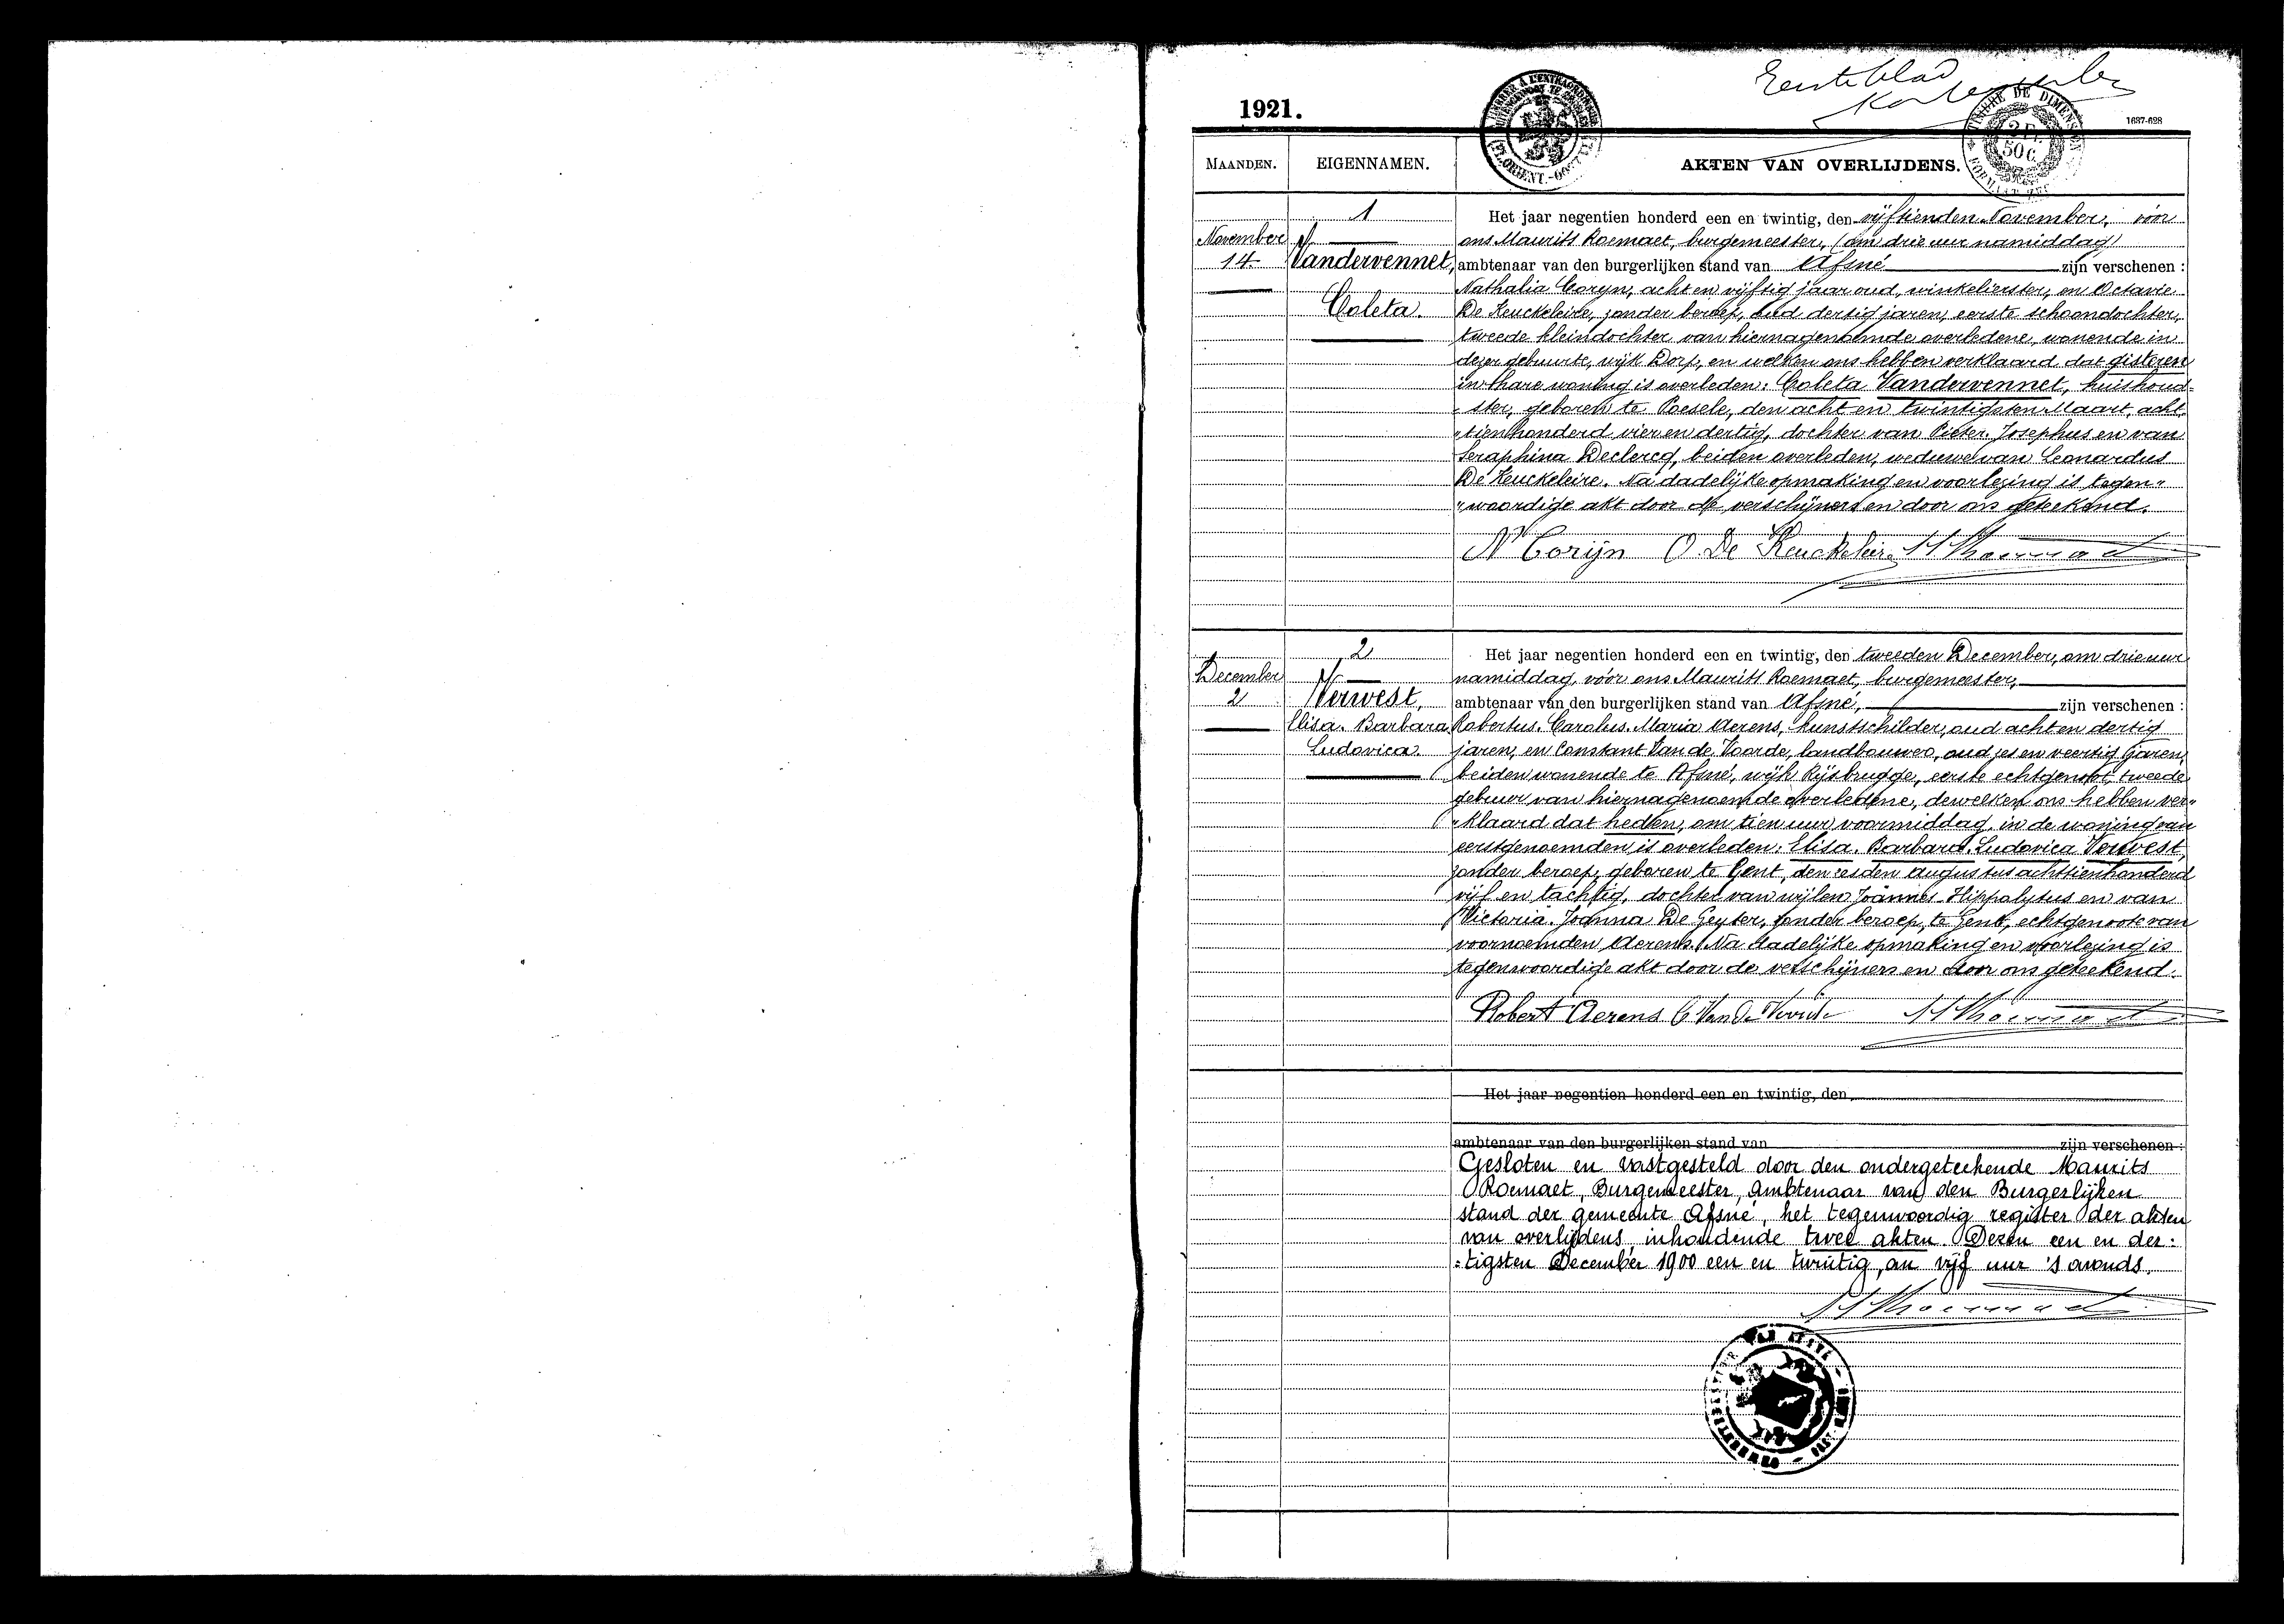 Eerste blad
1921.
1637-628
MAANDEN.
EIGENNAMEN.
AKTEN VAN OVERLIJDENS.
TIMBRE DE DIMENSION
2 Fr. 50 C.
1
Het jaar negentien honderd een en twintig, den vijftienden November, vóór
November
ons Maurits Roemaet, burgemeester, (om drie uur namiddag)
14
Vandervennet,
ambtenaar van den burgerlijken stand van Afsné zijn verschenen :
Nathalia Coryn, acht en vijftig jaar oud, winkelierster, en Octavie
Coleta.
De Keuckeleire, zonder beroep, oud dertig jaren, eerste schoondochter,
tweede kleindochter van hiernagenoemde overledene, wonende in
dezer gebuurte, wijk Dorp, en welken ons hebben verklaard dat gisteren
in hare woning is overleden: Coleta Vandervennet, huishoud=
=ster, geboren te Poesele, den acht en twintigsten Maart, acht
"tien honderd vier en dertig, dochter van Pieter. Josephus en van
Seraphina Declercq, beiden overleden, weduwe van Leonardus
De Keuckeleire. Na dadelijke opmaking en voorlezing is tegen"
"woordige akt door de verschijners en door ons geteekend.
N Corijn O. De Keuckeleire
2
Het jaar negentien honderd een en twintig, den tweeden December, om drie uur
December
namiddag, vóór ons Maurits Roemaet, burgemeester,
2
Verwest,
ambtenaar van den burgerlijken stand van Afsné, zijn verschenen :
Elisa. Barbara
Robertus. Carolus. Maria Aerens, kunstschilder, oud acht en dertig
Ludovica.
jaren, en Constant Van de Voorde, landbouwer, oud zes en veertig jaren,
beiden wonende te Afsné, wijk Rijsbrugge, eerste echtgenoot, tweede
gebuur van hiernagenoemde overledene, dewelken ons hebben ver"
"klaard dat heden, om tien uur voormiddag, in de woning van
eerstgenoemden is overleden: Elisa. Barbara. Ludovica Verwest,
zonder beroep, geboren te Gent, den zesden augustus achttienhonderd
vijf en tachtig, dochter van wijlen Joännes Hippolytus en van
Victoria. Joanna De Geyter, zonder beroep, te Gent, echtgenoote van
voornoemden Aerens. Na dadelijke opmaking en voorlezing is
tegenwoordige akt door de verschijners en door ons geteekend.
Robert Aerens C Van De Voorde
Het jaar negentien honderd een en twintig, den
ambtenaar van den burgerlijken stand van zijn verschenen :
Gesloten en vastgesteld door den ondergeteekende Maurits
Roemaet, Burgemeester, ambtenaar van den Burgerlijken
stand der gemeente Afsné, het tegenwoordig register der akten
van overlijdens inhoudende twee akten. Dezen een en der:
:tigsten December 1900 een en twintig, om vijf uur 's avonds.